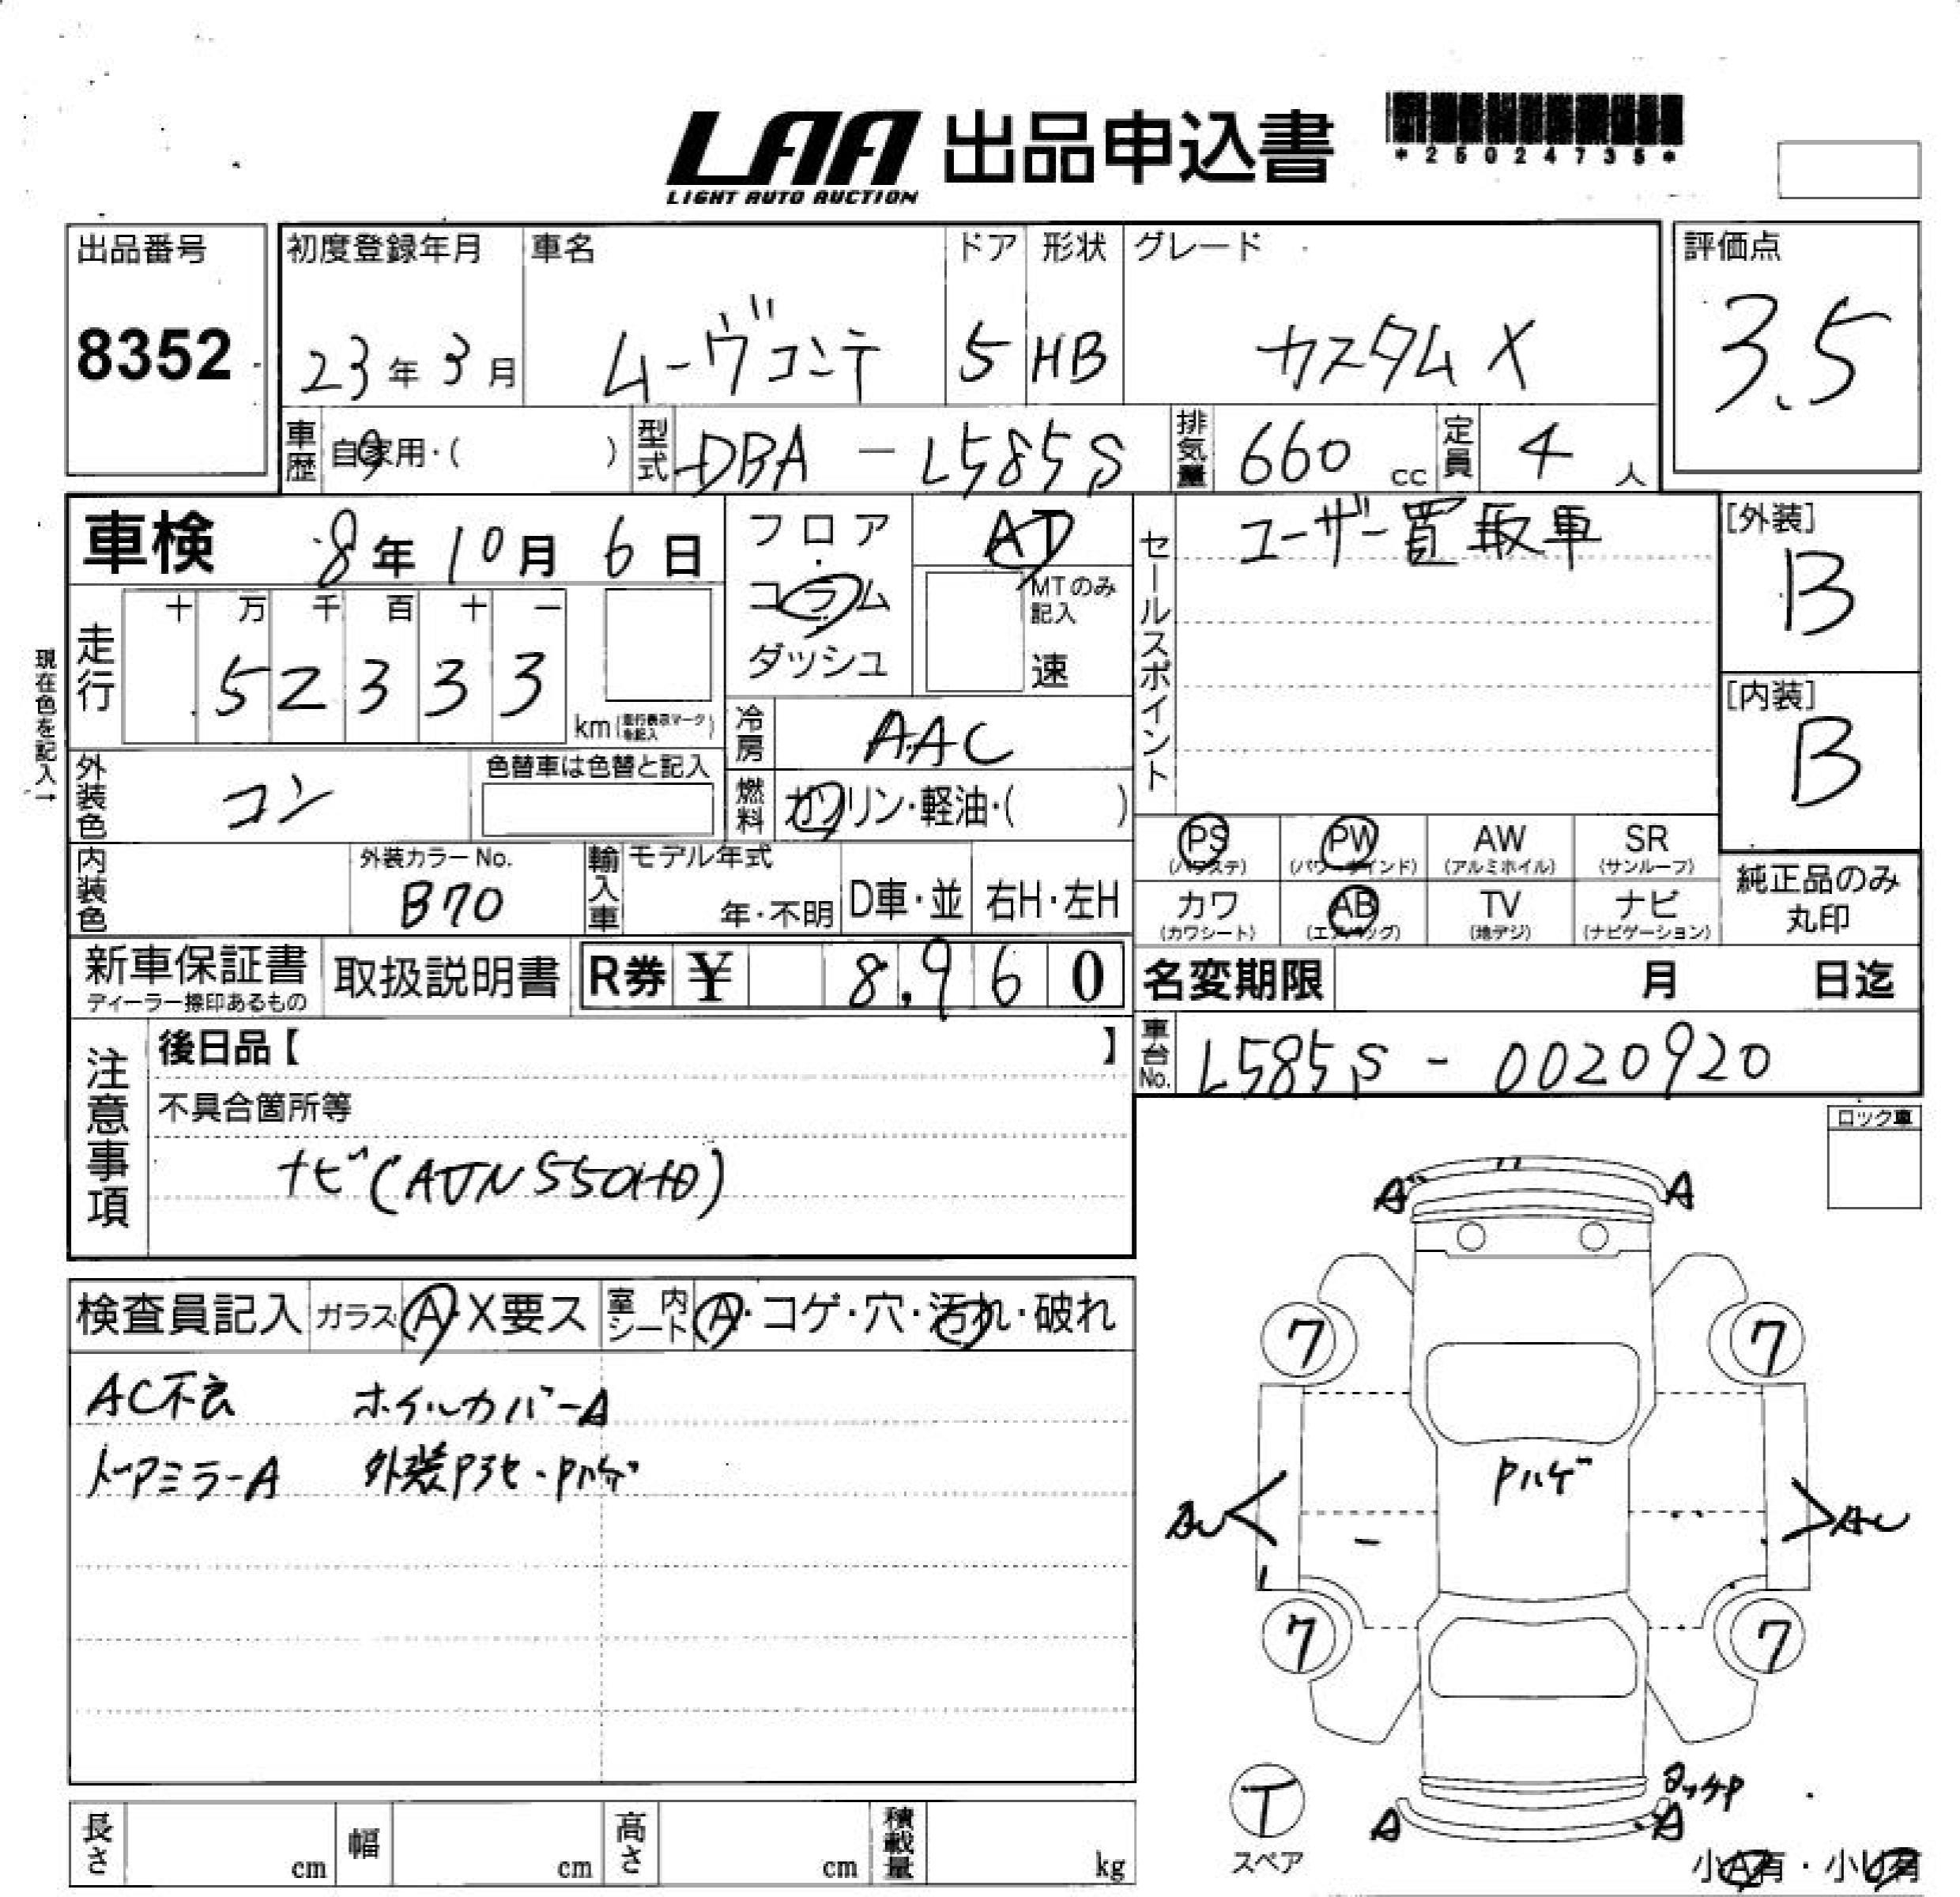 LAA 出品申込書
LIGHT AUTO AUCTION
*25024735*
出品番号
8352
初度登録年月
23年3月
車名
ムーヴコンテ
ドア
5
形状
HB
グレード
カスタムX
評価点
3.5
車歴
自家用・( )
型式
DBA-L585S
排気量
660 cc
定員
4人
車検 8年10月6日
現在色を記入→
走行
十 万 千 百 十 一
5 2 3 3 3
km (走行表示マークを記入)
フロア
・
コラム
・
ダッシュ
AT
MTのみ記入
速
冷房
AAC
燃料
ガソリン・軽油・( )
セールスポイント
ユーザー買取車
[外装]
B
[内装]
B
外装色
コン
色替車は色替と記入
内装色
外装カラーNo.
B70
輸入車
モデル年式
年・不明
D車・並
右H・左H
PS
(パワステ)
PW
(パワーウインド)
AW
(アルミホイル)
SR
(サンルーフ)
カワ
(カワシート)
AB
(エアバッグ)
TV
(地デジ)
ナビ
(ナビゲーション)
純正品のみ
丸印
新車保証書
ディーラー捺印あるもの
取扱説明書
R券 ¥ 8,960
名変期限 月 日迄
車台No.
L585S-0020920
注意事項
後日品【 】
不具合箇所等
ナビ(AVN550HD)
ロック車
検査員記入
ガラス A・X要ス
室内シート A・コゲ・穴・汚れ・破れ
AC不良 ホイルカバーA
ドアミラーA 外装Pヨセ・Pハゲ
A A
7 7
Pハゲ
AU AU
7 7
タッチP
A A
T
スペア
小A有・小U有
長さ cm
幅 cm
高さ cm
積載量 kg